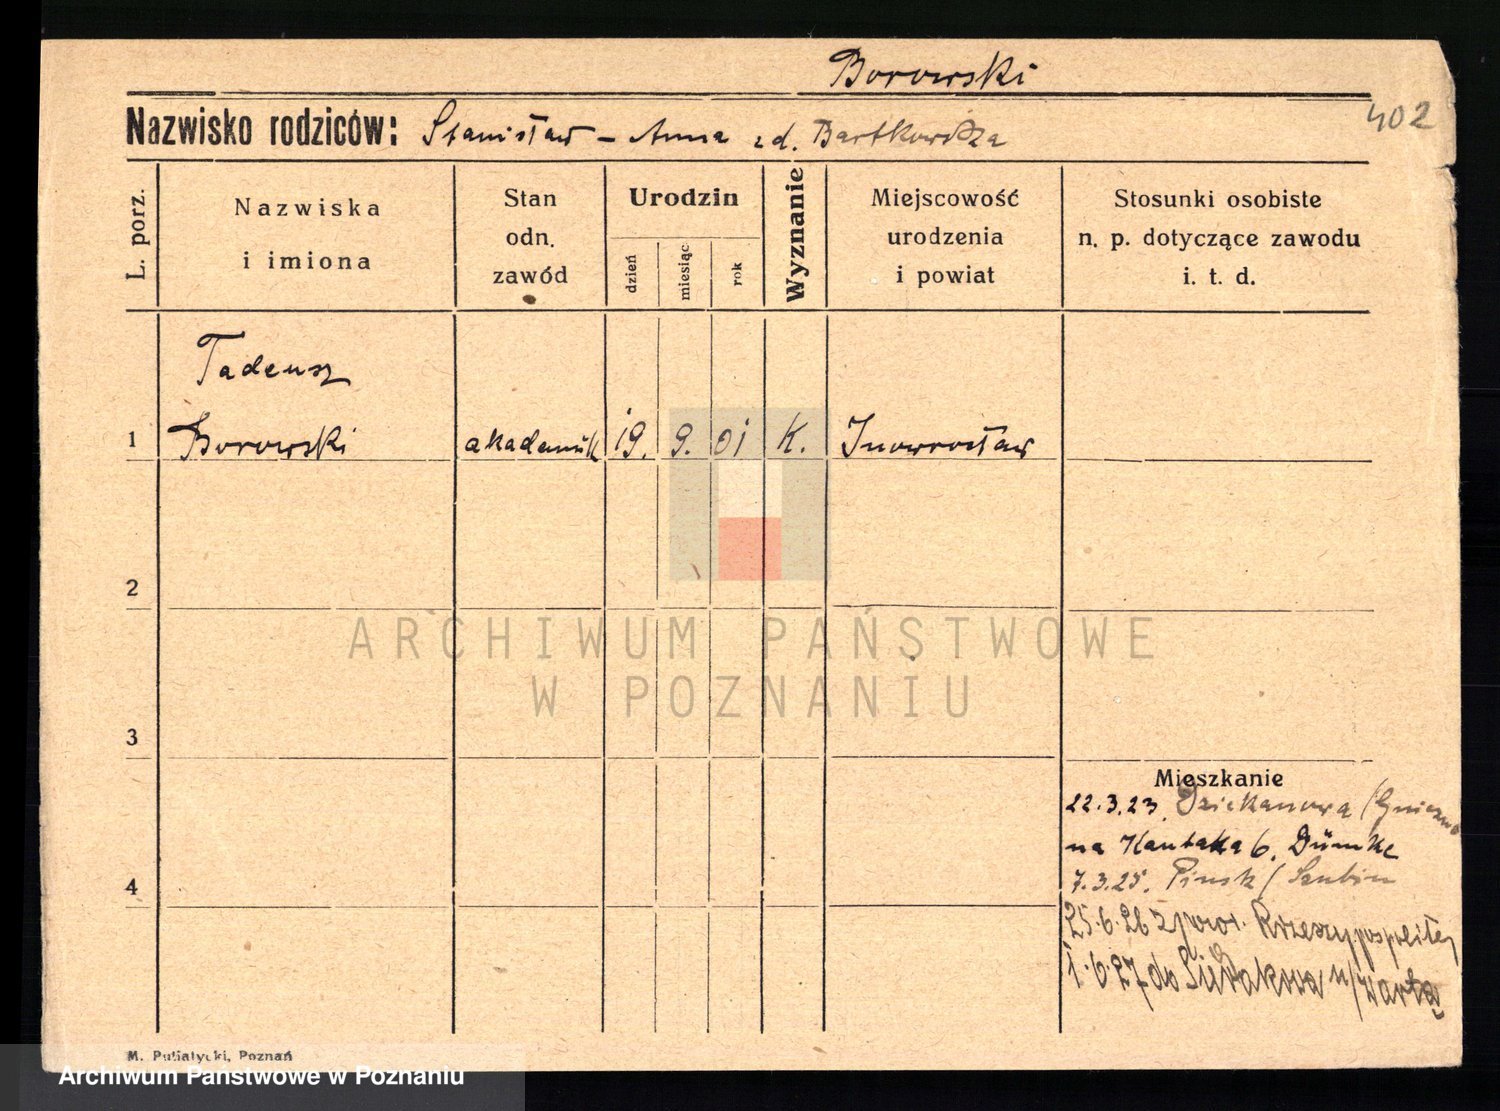 Borowski
402
Nazwisko rodziców: Stanisław – Anna zd. Bartkowska
L. porz.
Nazwiska
i imiona
Stan
odn.
zawód
Urodzin
dzień
miesiąc
rok
Wyznanie
Miejscowość
urodzenia
i powiat
Stosunki osobiste
n. p. dotyczące zawodu
i. t. d.
Tadeusz
1 Borowski akademik 19. 9. 01 K. Inowrocław
2
ARCHIWUM PAŃSTWOWE
W POZNANIU
3
Mieszkanie
22.3.23. Dziekanowa / Gniezno
na Kantaka 6. Dümke
4
7.3.25. Pinsk / Szubin
25.6.26 z pow. Rzeszypospolitej
1.6.27 do Sierakowa n/Wartą
M. Putiatycki, Poznań
Archiwum Państwowe w Poznaniu